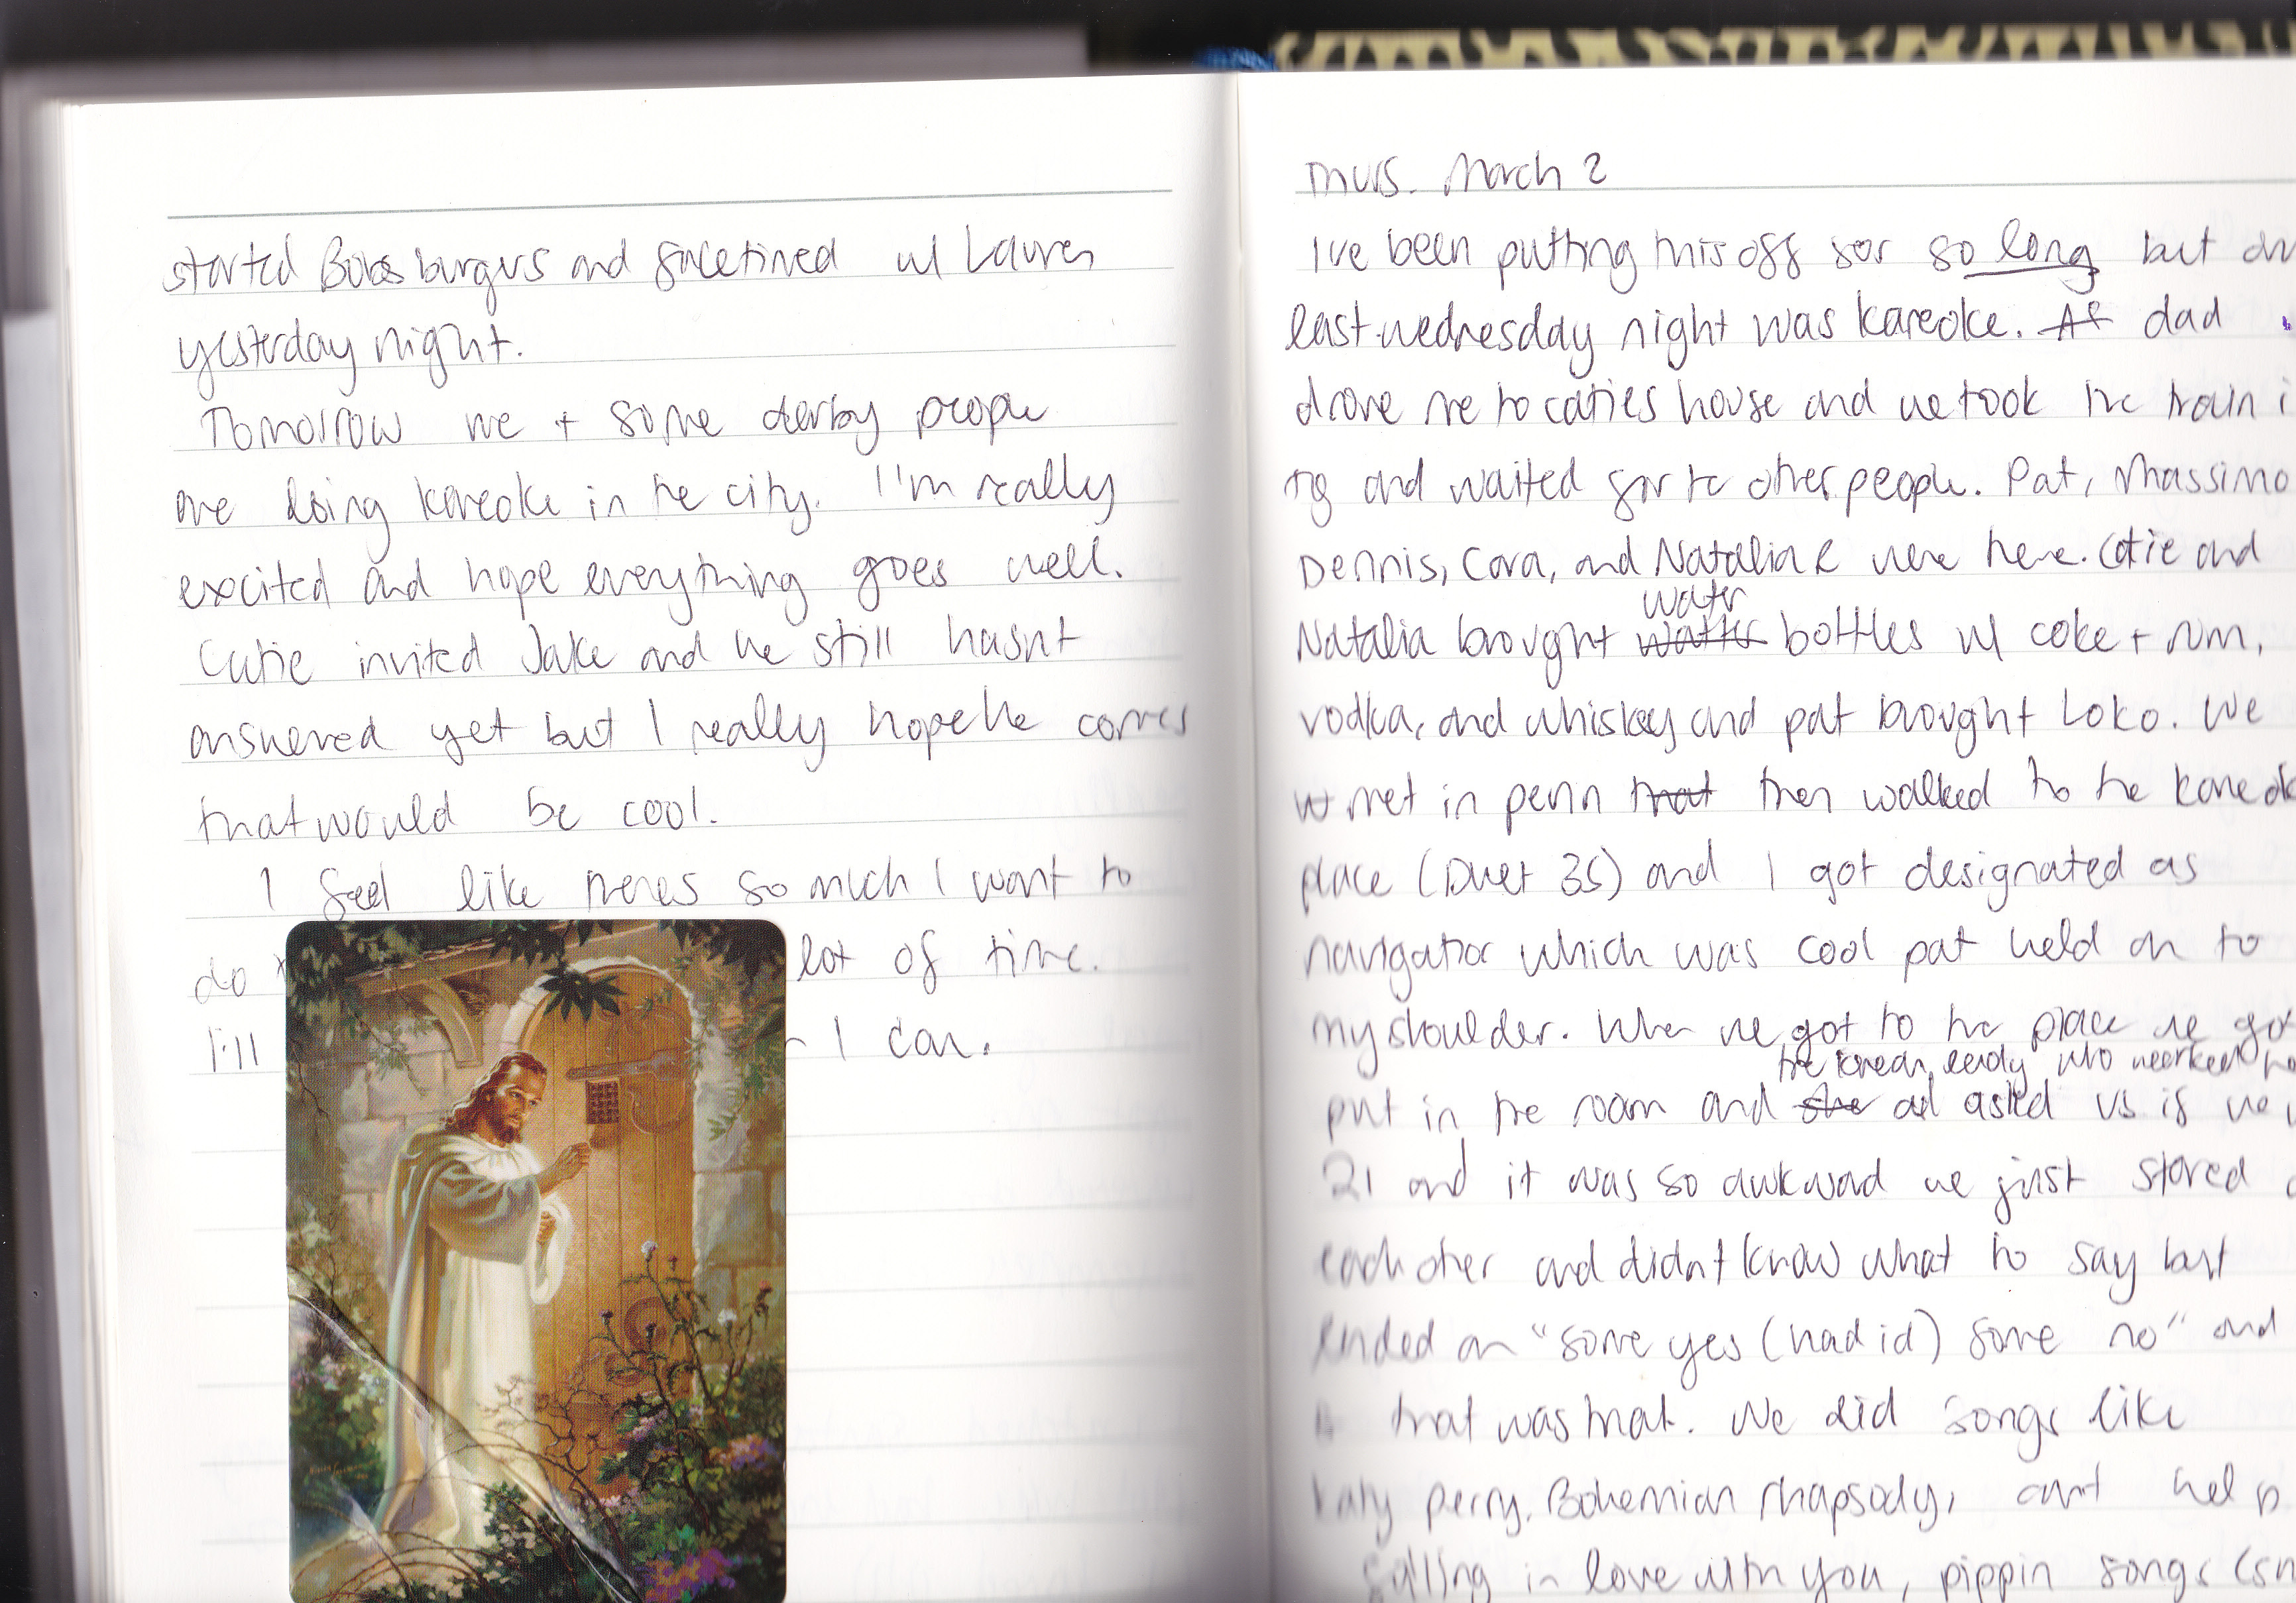 started Bobs burgers and facetimed w/ Lauren
yesterday night.
Tomorrow me + some derby people
are doing kareoke in the city. I'm really
excited and hope everything goes well.
Catie invited Jake and he still hasnt
answered yet but I really hope he comes
that would be cool.
I feel like theres so much I want to
do lot of time.
I'll I can.
Thurs. March 2
I've been putting this off for so long but
last wednesday night was kareoke. At dad
drove me to caties house and we took the train
and waited for the other people. Pat, Massimo
Dennis, Cara, and Natalia R were there. Catie and
water
Natalia brought watter bottles w/ coke + rum,
vodka, and whiskey and pat brought Loko. We
met in penn that then walked to the kareok
place (Duet 35) and I got designated as
navigator which was cool pat held on to
my shoulder. When we got to the place we got
the korean lady who worked
put in the room and she asked us if we
21 and it was so awkward we just stared
each other and didnt know what to say but
ended on "some yes (had id) some no" and
that was that. We did songs like
katy perry, Bohemian rhapsody, cant help
falling in love with you, pippin songs